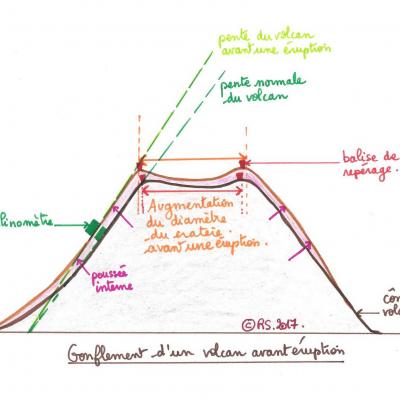 pente du volcan
avant une éruption
pente normale
du volcan
balise de
repérage.
linomètre
Augmentation
du diamètre
du cratère
avant une éruption.
poussée
interne
côn
volc
©RS.2017.
Gonflement d'un volcan avant éruption